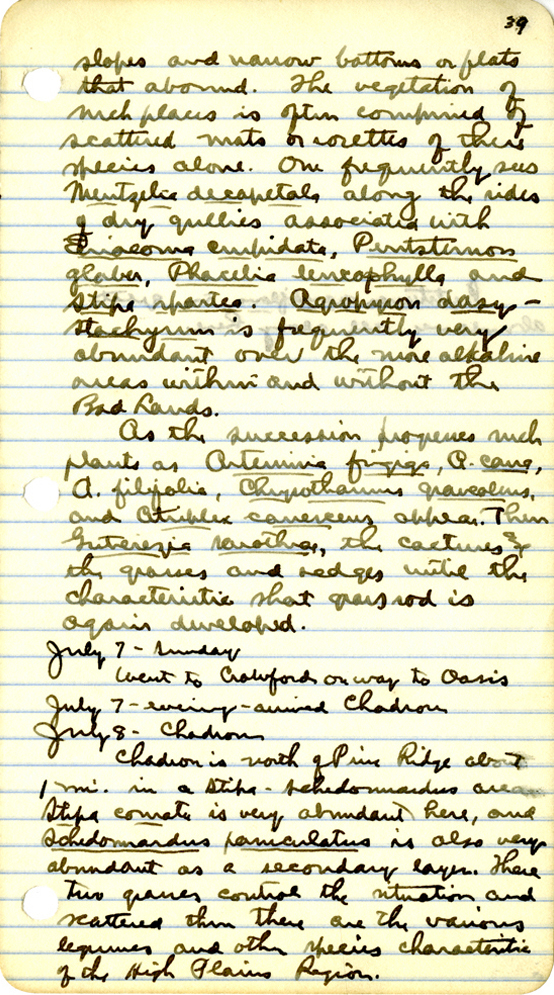 39
slopes and narrow bottoms or flats
that abound. The vegetation of
such places is often comprised of
scattered mats or rosettes of these
species alone. One frequently sees
Mentzelia decapetala along the sides
of dry gullies associated with
Eriocoma cuspidata, Pentstemon
glaber, Phacelia leucophylla and
Stipa spartea. Agropyron dasy-
stachyum is frequently very
abundant over the more alkaline
areas within and without the
Bad Lands.
As the succession progresses such
plants as Artemisia frigida, A. cana,
A. filifolia, Chrysothamnus graveolens,
and Atriplex canescens appear. Then
Guterezia sarothrae, the cactuses &
the grasses and sedges until the
characteristic short grass sod is
again developed.
July 7 - Sunday
Went to Crawford on way to Oasis
July 7 - evening - arrived Chadron
July 8 - Chadron
Chadron is north of Pine Ridge about
1 mi. in a Stipa - Schedonnardus area
Stipa comata is very abundant here, and
Schedonnardus paniculatus is also very
abundant as a secondary layer. These
two grasses control the situation and
scattered thru there are the various
legumes and other species characteristic
of the High Plains Region.